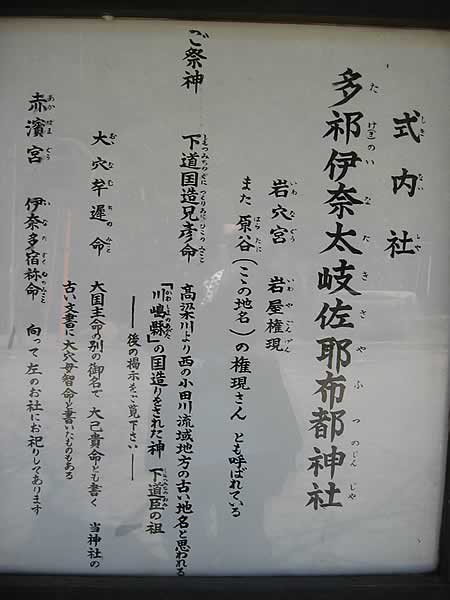 式内社
多祁伊奈太岐佐耶布都神社
岩穴宮 岩屋権現
また 原谷(ここの地名)の権現さん とも呼ばれている
ご祭神
下道国造兄彦命
高梁川より西の小田川流域地方の古い地名と思われる
「川嶋縣」の国造りをされた神 下道臣の祖
――後の掲示をご覧下さい――
大穴牟遅命
大国主命の別の御名で 大己貴命とも書く 当神社の
古い文書に大穴母智命と書いたものもある
赤濱宮 伊奈多宿祢命 向って左のお社にお祀りしてあります